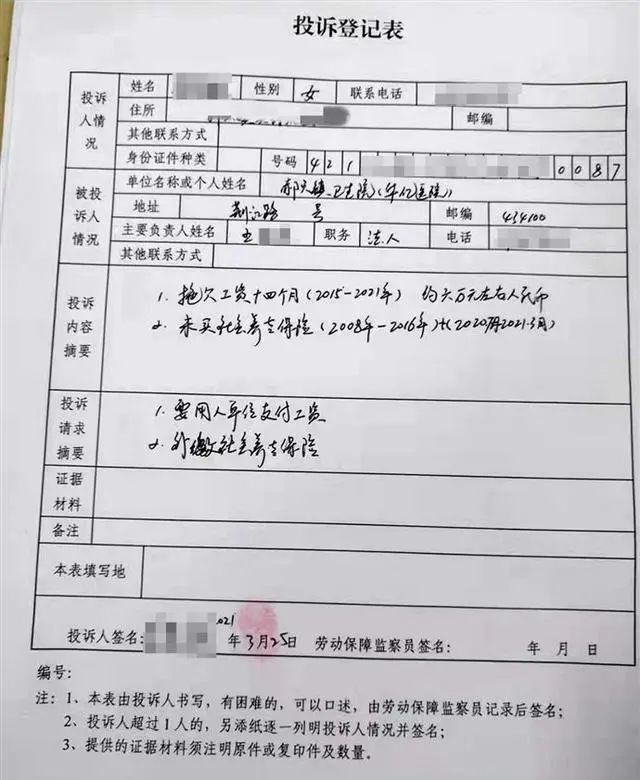 投诉登记表
投诉人情况
姓名 性别 女 联系电话
住所 邮编
其他联系方式
身份证件种类 号码 421 0087
被投诉人情况
单位名称或个人姓名 郝穴镇卫生院(华亿医院)
地址 荆江路 号 邮编 434100
主要负责人姓名 职务 法人 电话
其他联系方式
投诉内容摘要
1. 拖欠工资十四个月(2015-2021年) 约六万元左右人民币
2. 未买社会养老保险(2008年-2016年)
投诉请求摘要
1. 要用人单位支付工资
2. 补缴社会养老保险
证据材料
备注
本表填写地
投诉人签名: 2021年3月25日 劳动保障监察员签名: 年 月 日
编号:
注:1、本表由投诉人书写,有困难的,可以口述,由劳动保障监察员记录后签名;
2、投诉人超过1人的,另添纸逐一列明投诉人情况并签名;
3、提供的证据材料须注明原件或复印件及数量。